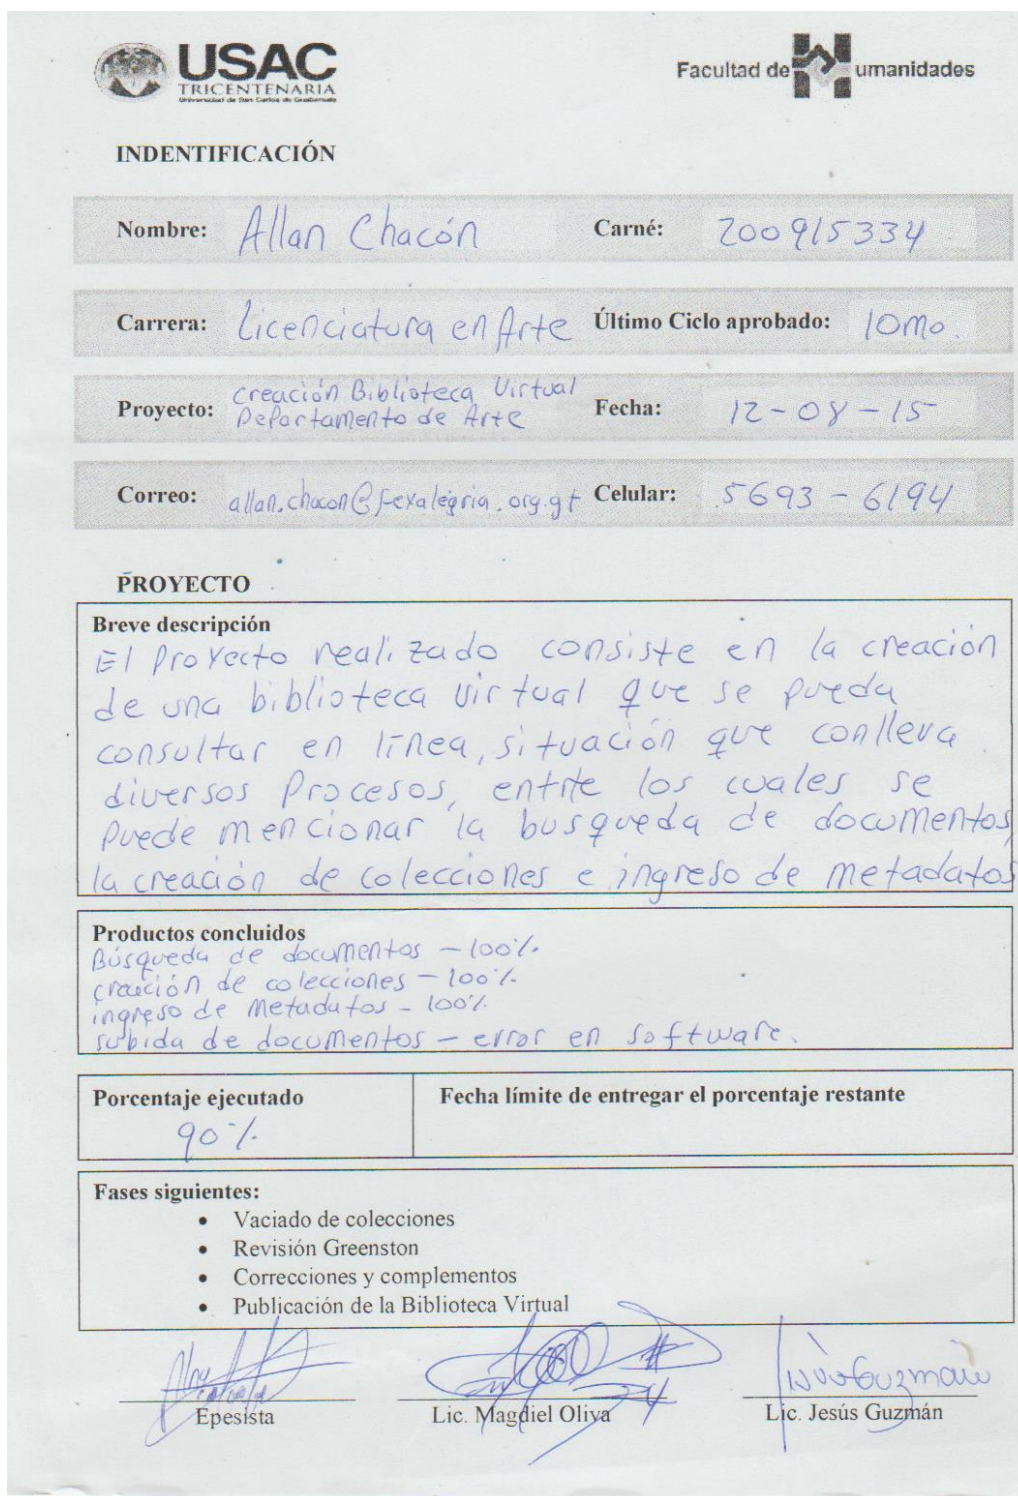 USAC
TRICENTENARIA
Universidad de San Carlos de Guatemala
Facultad de Humanidades
INDENTIFICACIÓN
Nombre: Allan Chacón Carné: 200915334
Carrera: Licenciatura en Arte Último Ciclo aprobado: 10mo.
Proyecto: Creación Biblioteca Virtual
Departamento de Arte Fecha: 12-08-15
Correo: allan.chacon@fexalegria.org.gt Celular: 5693-6194
PROYECTO
Breve descripción
El Proyecto realizado consiste en la creación
de una biblioteca virtual que se pueda
consultar en línea, situación que conlleva
diversos Procesos, entre los cuales se
puede mencionar la busqueda de documentos,
la creación de colecciones e ingreso de metadatos
Productos concluidos
Búsqueda de documentos - 100%
creación de colecciones - 100%
ingreso de Metadatos - 100%
subida de documentos - error en software.
Porcentaje ejecutado Fecha límite de entregar el porcentaje restante
90%
Fases siguientes:
• Vaciado de colecciones
• Revisión Greenston
• Correcciones y complementos
• Publicación de la Biblioteca Virtual
Epesista Lic. Magdiel Oliva Lic. Jesús Guzmán